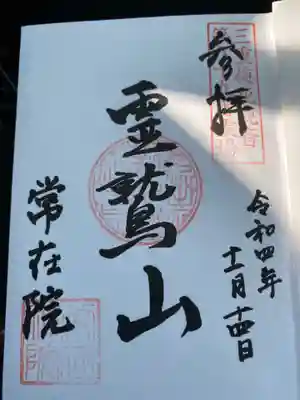 参拝
令和四年
十二月十四日
霊鷲山
常在院